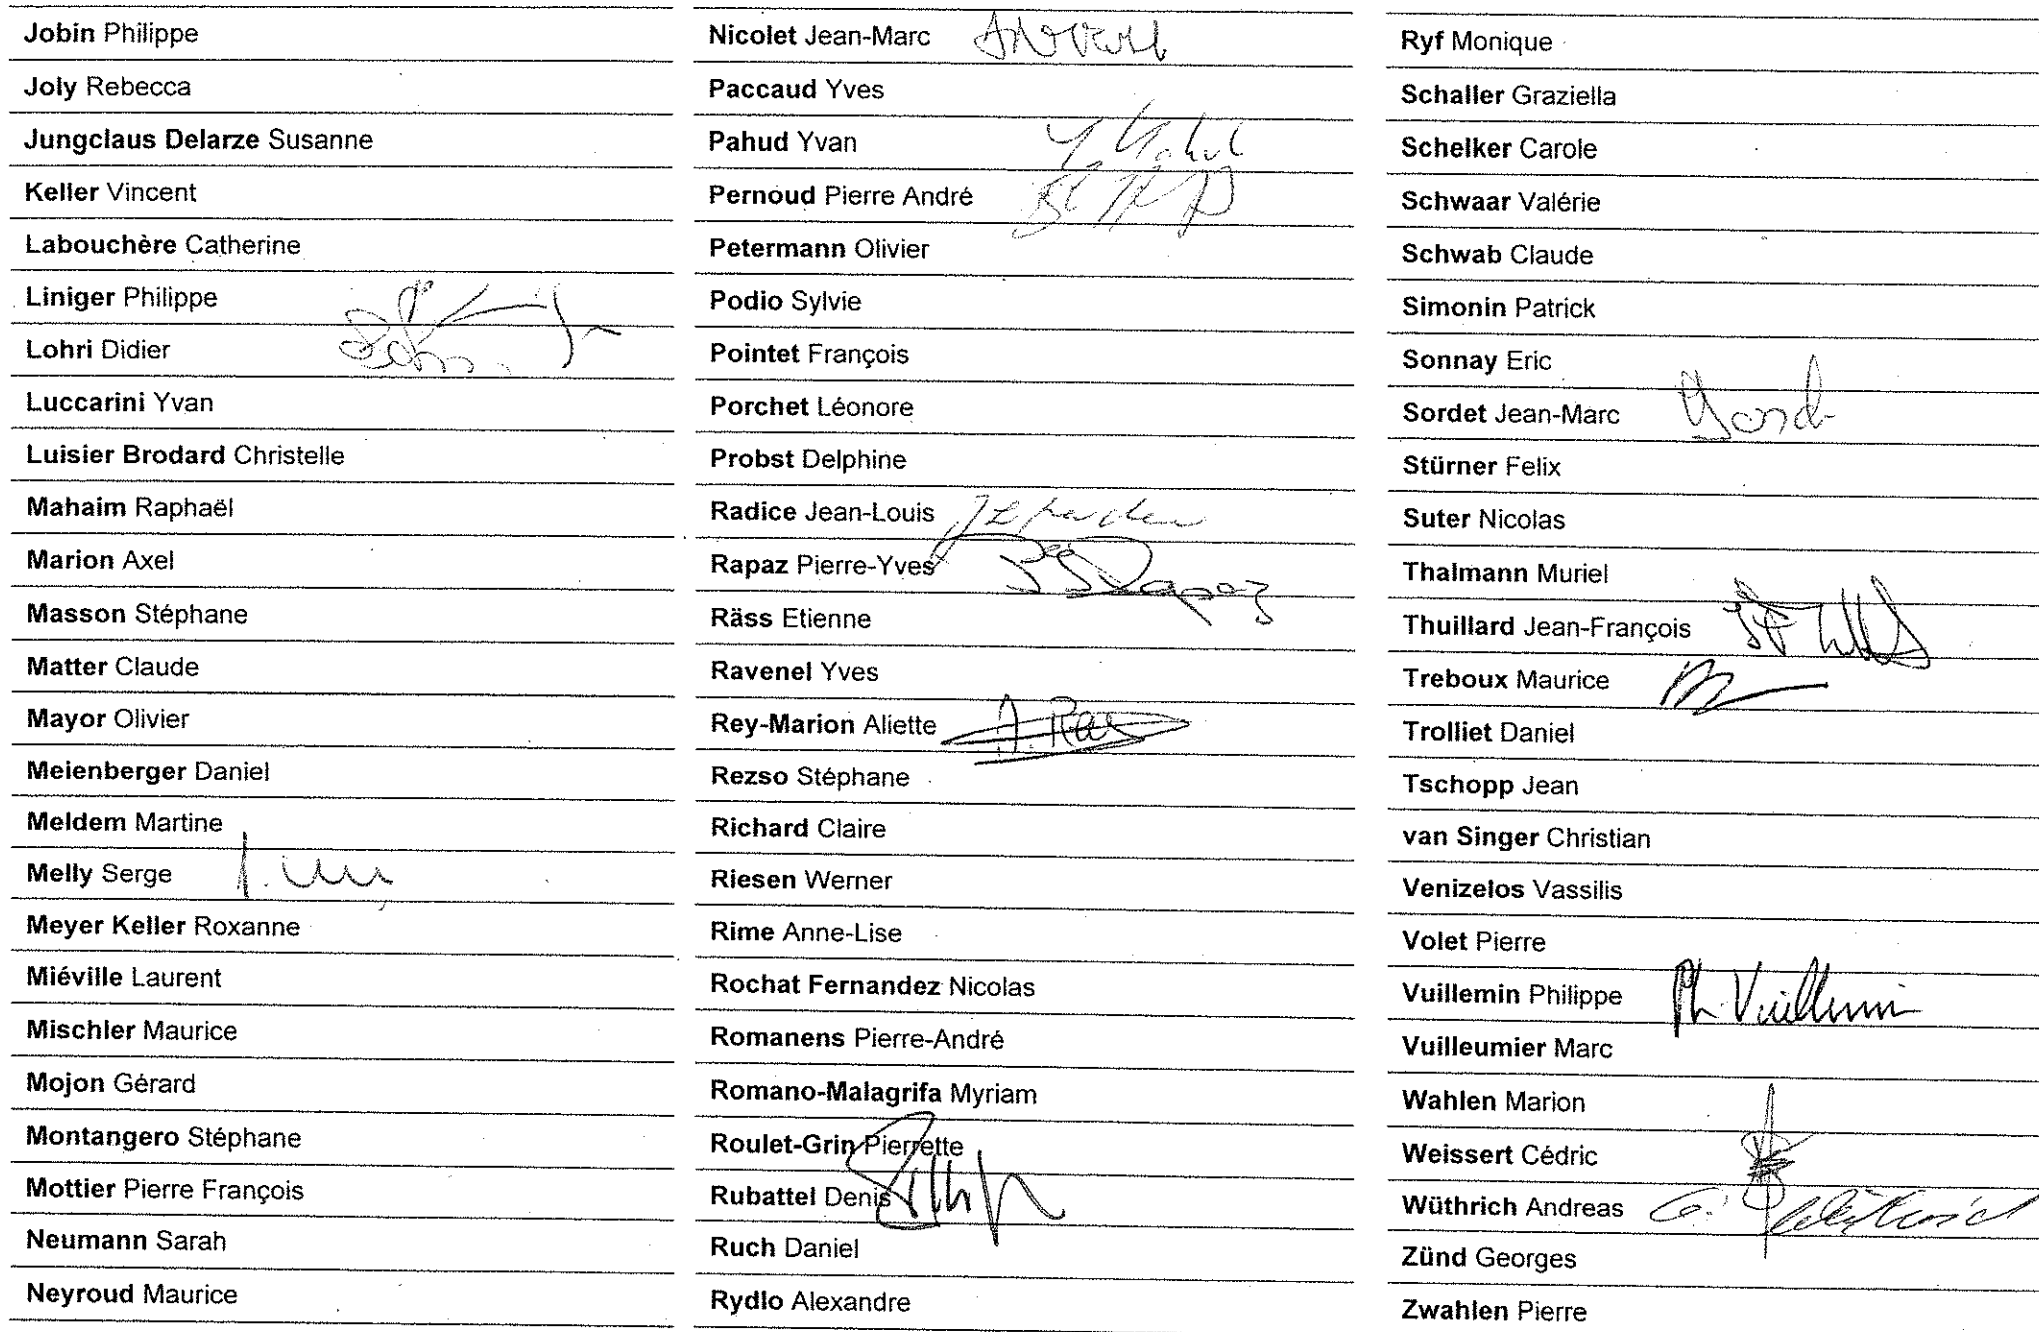 Jobin Philippe
Joly Rebecca
Jungclaus Delarze Susanne
Keller Vincent
Labouchère Catherine
Liniger Philippe
Lohri Didier
Luccarini Yvan
Luisier Brodard Christelle
Mahaim Raphaël
Marion Axel
Masson Stéphane
Matter Claude
Mayor Olivier
Meienberger Daniel
Meldem Martine
Melly Serge
Meyer Keller Roxanne
Miéville Laurent
Mischler Maurice
Mojon Gérard
Montangero Stéphane
Mottier Pierre François
Neumann Sarah
Neyroud Maurice
Nicolet Jean-Marc
Paccaud Yves
Pahud Yvan
Pernoud Pierre André
Petermann Olivier
Podio Sylvie
Pointet François
Porchet Léonore
Probst Delphine
Radice Jean-Louis
Rapaz Pierre-Yves
Räss Etienne
Ravenel Yves
Rey-Marion Aliette
Rezso Stéphane
Richard Claire
Riesen Werner
Rime Anne-Lise
Rochat Fernandez Nicolas
Romanens Pierre-André
Romano-Malagrifa Myriam
Roulet-Grin Pierrette
Rubattel Denis
Ruch Daniel
Rydlo Alexandre
Ryf Monique
Schaller Graziella
Schelker Carole
Schwaar Valérie
Schwab Claude
Simonin Patrick
Sonnay Eric
Sordet Jean-Marc
Stürner Felix
Suter Nicolas
Thalmann Muriel
Thuillard Jean-François
Treboux Maurice
Trolliet Daniel
Tschopp Jean
van Singer Christian
Venizelos Vassilis
Volet Pierre
Vuillemin Philippe Ph. Vuillemin
Vuilleumier Marc
Wahlen Marion
Weissert Cédric
Wüthrich Andreas
Zünd Georges
Zwahlen Pierre